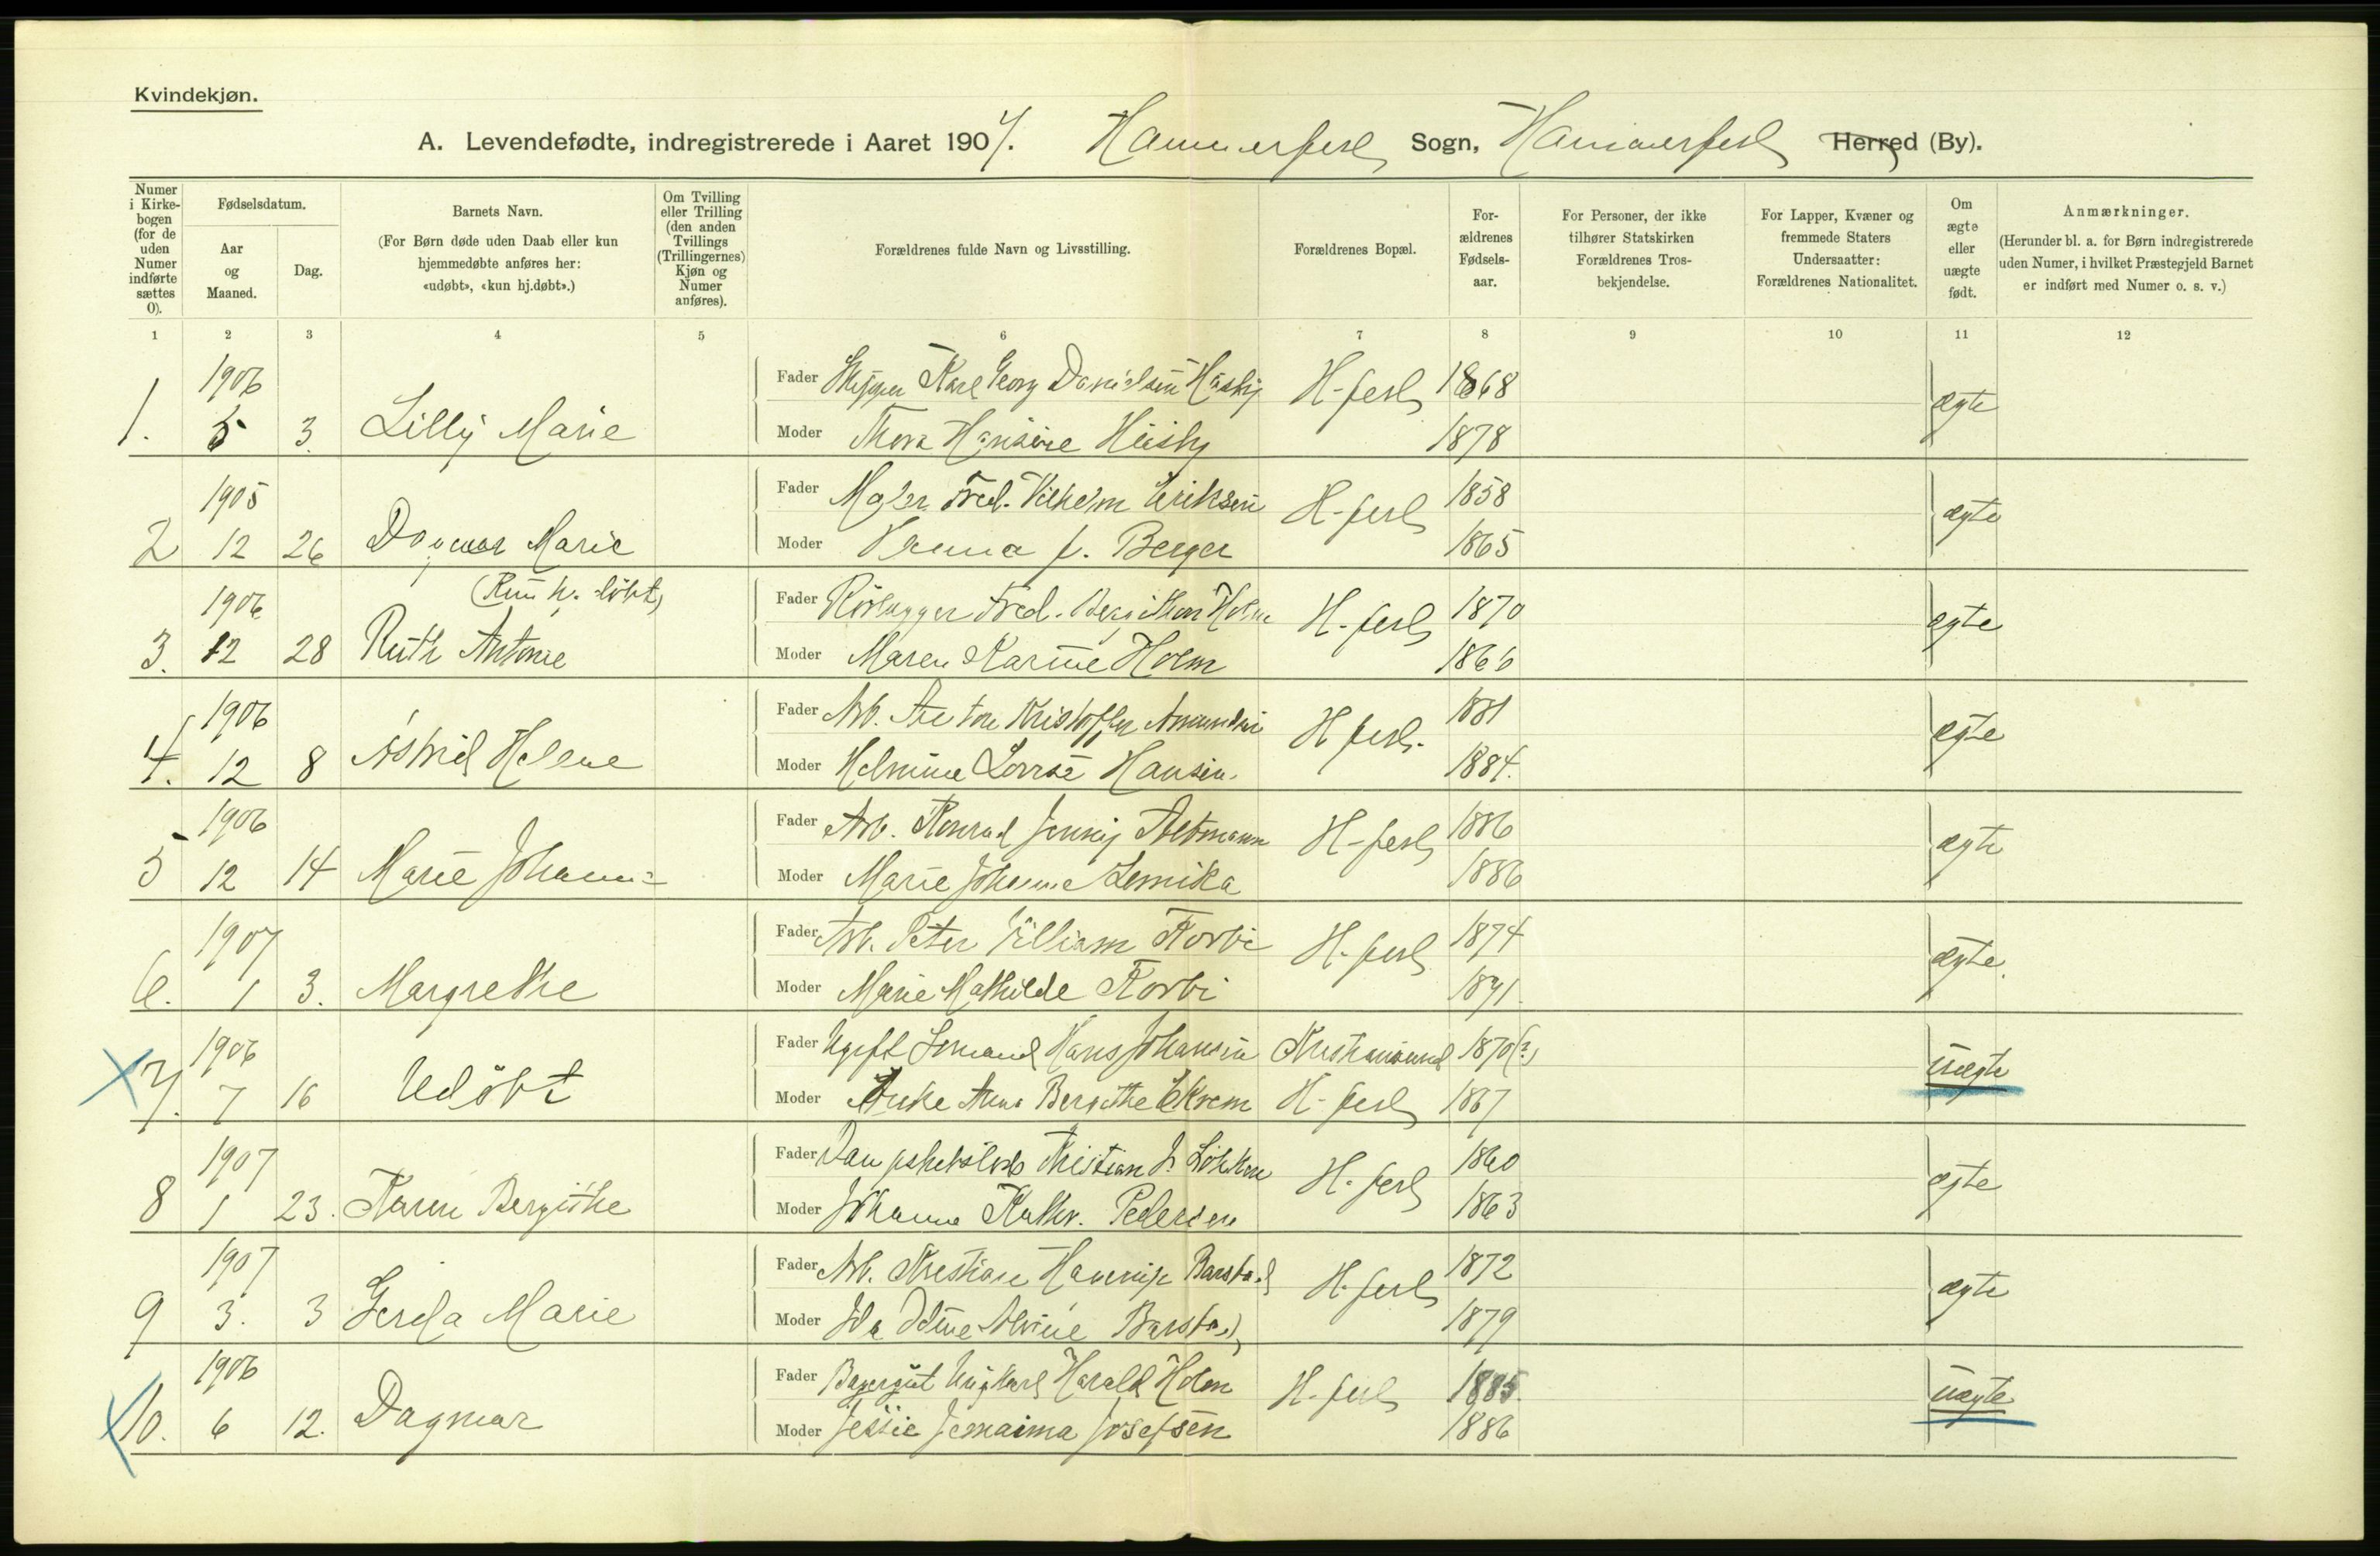 Kvindekjøn.
A. Levendefødte, indregistrerede i Aaret 1907. Hammerfest Sogn, Hammerfest Herred (By).
Numer i Kirkebogen (for de uden Numer indførte sættes 0).
Fødselsdatum.
Aar og Maaned.
Dag.
Barnets Navn.
(For Børn døde uden Daab eller kun hjemmedøbte anføres her: «udøbt», «kun hj.døbt».)
Om Tvilling eller Trilling (den anden Tvillings (Trillingernes) Kjøn og Numer anføres).
Forældrenes fulde Navn og Livsstilling.
Forældrenes Bopæl.
Forældrenes Fødselsaar.
For Personer, der ikke tilhører Statskirken Forældrenes Trosbekjendelse.
For Lapper, Kvæner og fremmede Staters Undersaatter: Forældrenes Nationalitet.
Om ægte eller uægte født.
Anmærkninger.
(Herunder bl. a. for Børn indregistrerede uden Numer, i hvilket Præstegjeld Barnet er indført med Numer o. s. v.)
1 2 3 4 5 6 7 8 9 10 11 12
1906 Fader Karl Georg Danielsen Husby H-fest 1868 ægte
1. 5 3. Lilly Marie Moder Thora Hansine Husby 1878
1905 Fader Maler Fred. Vilhelm Eriksen H-fest 1858 ægte
2 12 26 Dagmar Marie Moder f. Berger 1865
(Kun hj. døbt)
1906 Fader Fred. Holm H-fest 1870 ægte
3. 12 28 Ruth Antonie Moder Maren Karine Holm 1866
1906 Fader Arb. Kristoffer Amundsen H fest. 1881 ægte
4. 12 8 Astrid Helene Moder Helmine Hansen. 1884.
1906 Fader Arb. Konrad Jenny Altmann H-fest 1886 ægte
5 12 14 Marie Johanne Moder Marie Johanne 1886
1907 Fader Arb. Peter William Korbi H-fest 1874 ægte.
6. 1 3. Margrethe Moder Marie Mathilde Korbi 1871.
1906 Fader Ugift Hans Johansen Kristiansund 1870(?) uægte
7. 7 16 Udøbt Moder Enke Anna Bergithe Ekrem H-fest 1867
1907 Fader Kristian H-fest 1860 ægte
8 1 23. Karen Bergithe Moder Johanna Kathr. Pedersen 1863
1907 Fader Arb. Kristian Barstad H-fest 1872 ægte
9 3. 3 Gerda Marie Moder Ida Alvine Barstad 1879
1906 Fader Ungkarl Harald Holm H-fest 1885. uægte
10. 6 12. Dagmar Moder Jessie Jemaima Josefsen 1886